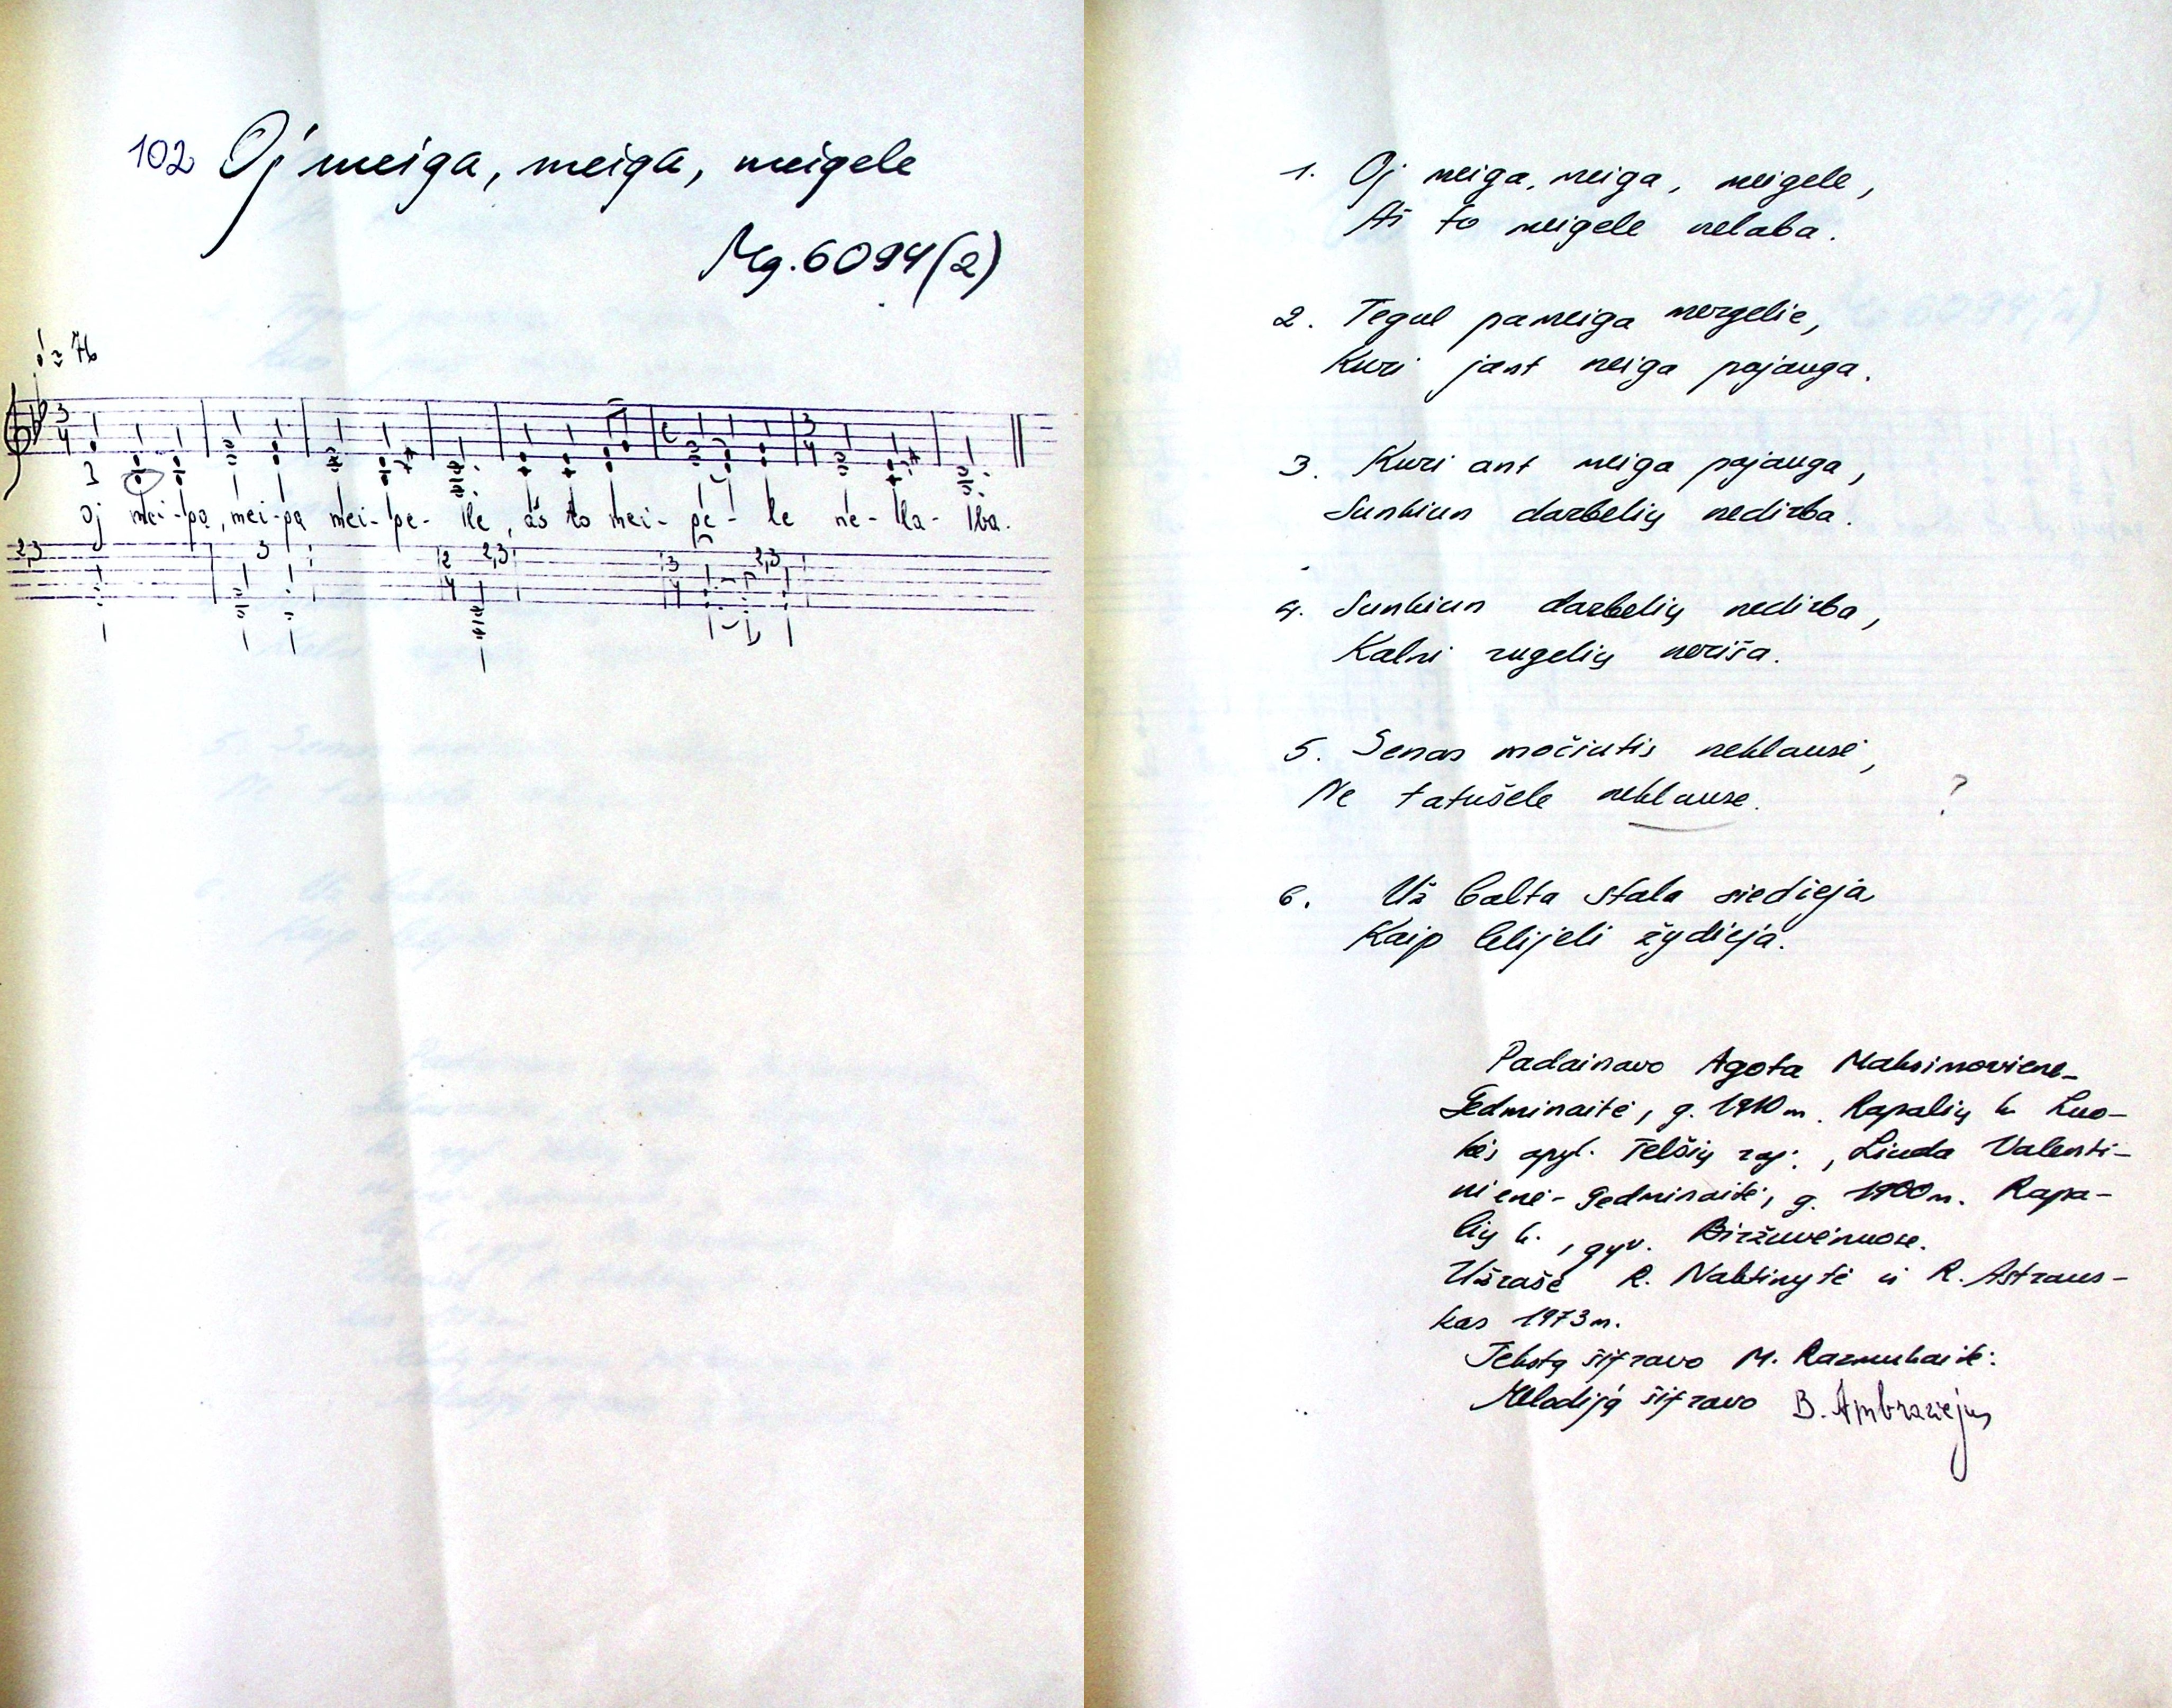 102 Oj meiga, meiga, meigele
Mg. 6094(2)
♩ = 76
Oj mei-ga, mei-ga mei-ge- lle, aš to mei- ge- le ne- lla- lba.
1. Oj meiga, meiga, meigele,
Aš to meigele nelaba.
2. Tegul pameiga mergelie,
Kuri jant meiga pajauga.
3. Kuri ant meiga pajauga,
Sunkiun darbelių nedirba.
4. Sunkiun darbelių nedirba,
Kalni rugelių neriša.
5. Senas močiutis neklausė,
Ne tatušele neklause. ?
6. Už balta stala siedieja,
Kaip lelijeli žydieja.
Padainavo Agota Maksimovienė-
Gedminaitė, g. 1910 m. Rapalių k. Luo-
kės apyl. Telšių raj., Liuda Valenti-
nienė-Gedminaitė, g. 1900 m. Rapa-
lių k., gyv. Biržuvėnuose.
Užrašė R. Naktinytė ir R. Astraus-
kas 1973 m.
Tekstą šifravo M. Razmukaitė.
Melodiją šifravo B. Ambraziejus